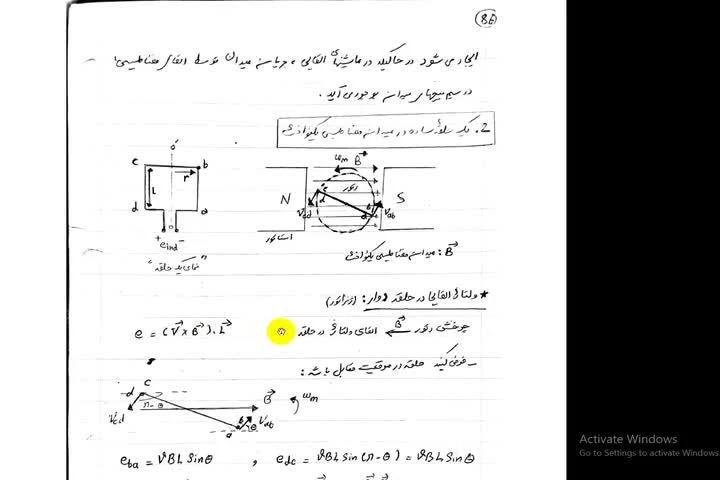 86
ایجاد می شود در حالیکه در ماشینهای القایی، جریان میدان توسط القای مغناطیسی
در سیم پیچهای میدان بوجود می آید.
2. یک حلقه ساده در میدان مغناطیسی یکنواخت
o'
c b
r
L
d a
o
+ eind -
"نمای یک حلقه"
ωm B
N S
c
d
رتور
b
a
Vcd Vab
استاتور
B: میدان مغناطیسی یکنواخت
* ولتاژ القایی در حلقه دوار: (ژنراتور)
چرخش رتور B القای ولتاژ در حلقه
e = (V×B).L
- فرض کنید حلقه در موقعیت مقابل باشد:
d c
π-θ
B
ωm
Vcd
b
a
θ
Vab
eba = vBL Sinθ , edc = vBL Sin(π-θ) = vBL Sinθ
Activate Windows
Go to Settings to activate Windows